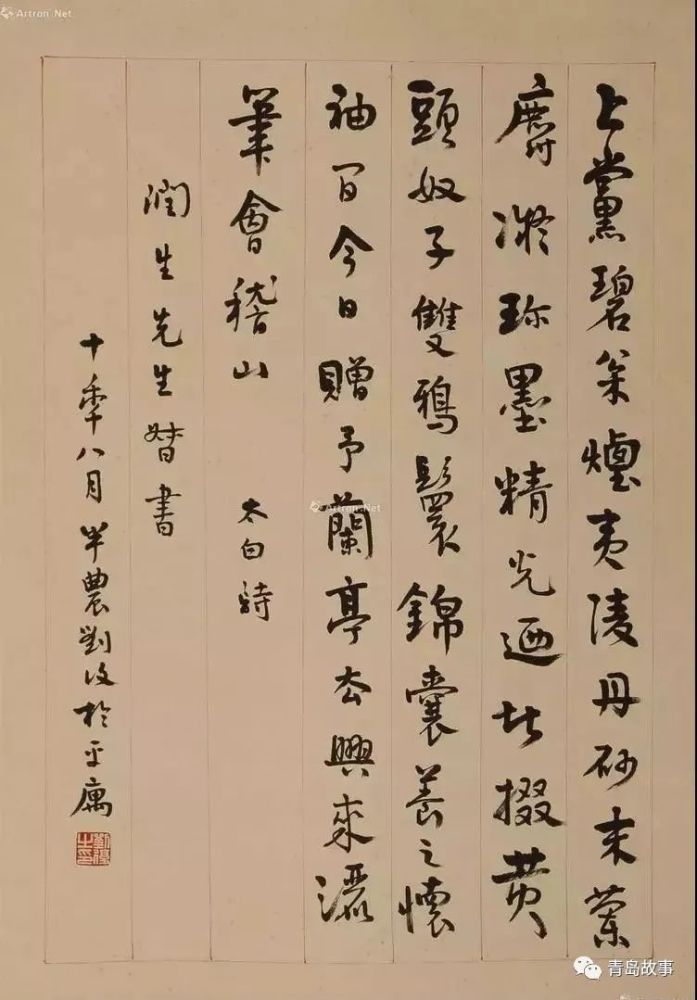 Artron.Net
上黨碧枀煙夷陵丹砂末蘭
麝凝珍墨精光迺堪掇黄
頭奴子雙鴉鬟錦囊養之懷
袖間今日贈予蘭亭去興來灑
筆會稽山 太白詩
潤生先生督書
十秊八月半農劉復於平寓
劉復之印
Artron.Net
青岛故事